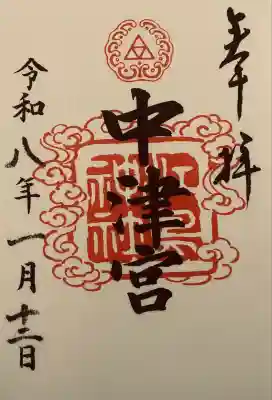 奉拝
中津宮
令和八年一月十二日